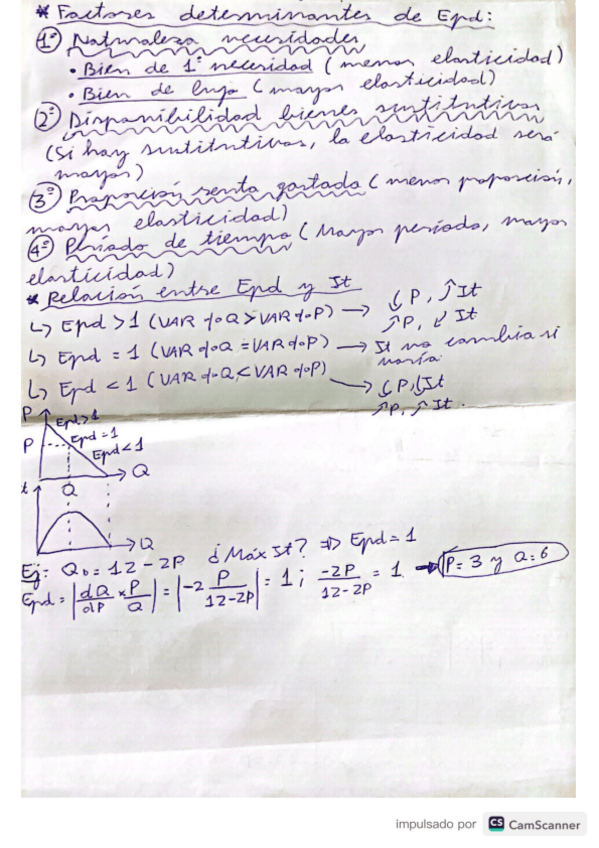 * Factores determinantes de Epd:
1º Naturaleza necesidades
• Bien de 1ª necesidad (menor elasticidad)
• Bien de lujo (mayor elasticidad)
2º Disponibilidad bienes sustitutivos
(Si hay sustitutivos, la elasticidad será
mayor)
3º Proporción renta gastada (menor proporción,
mayor elasticidad)
4º Período de tiempo (Mayor período, mayor
elasticidad)
* Relación entre Epd y It
↳ Epd > 1 (VAR % Q > VAR % P) → ↓P, ↑It
↑P, ↓It
↳ Epd = 1 (VAR % Q = VAR % P) → It no cambia si
varía
↳ Epd < 1 (VAR % Q < VAR % P) → ↓P, ↓It
↑P, ↑It.
P
Epd>1
P
Epd=1
Epd<1
Q
t
Q
Q
Ej: QD = 12 - 2P ¿Máx It? ⇒ Epd = 1
Epd = |dQ/dP × P/Q| = |-2 P/12-2P| = 1; -2P/12-2P = 1 → P=3 y Q=6
impulsado por CS CamScanner